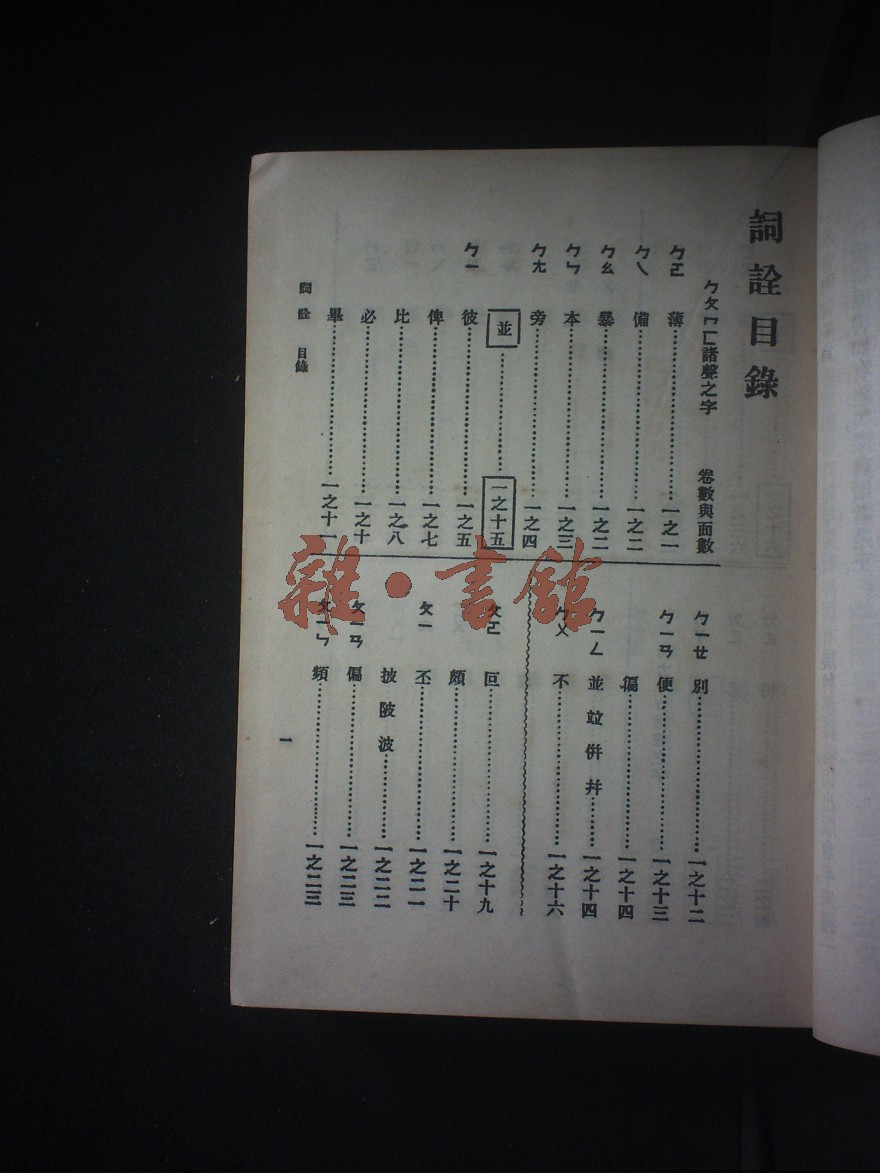 詞詮目錄
ㄅㄆㄇㄈ諸聲之字　卷數與面數
ㄅㄛ　薄…………一之一
ㄅㄟ　備…………一之二
ㄅㄠ　暴…………一之二
ㄅㄣ　本…………一之三
ㄅㄤ　旁…………一之四
並…………一之十五
ㄅㄧ　彼…………一之五
俾…………一之七
比…………一之八
必…………一之十
畢…………一之十一
ㄅㄧㄝ　別…………一之十二
ㄅㄧㄢ　便…………一之十三
徧…………一之十四
ㄅㄧㄥ　並竝併幷…………一之十四
ㄅㄨ　不…………一之十六
ㄆㄛ　叵…………一之十九
頗…………一之二十
ㄆㄧ　丕…………一之二一
披陂波…………一之二二
ㄆㄧㄢ　偏…………一之二三
ㄆㄧㄣ　頻…………一之二三
詞詮　目錄
一
雜·書館